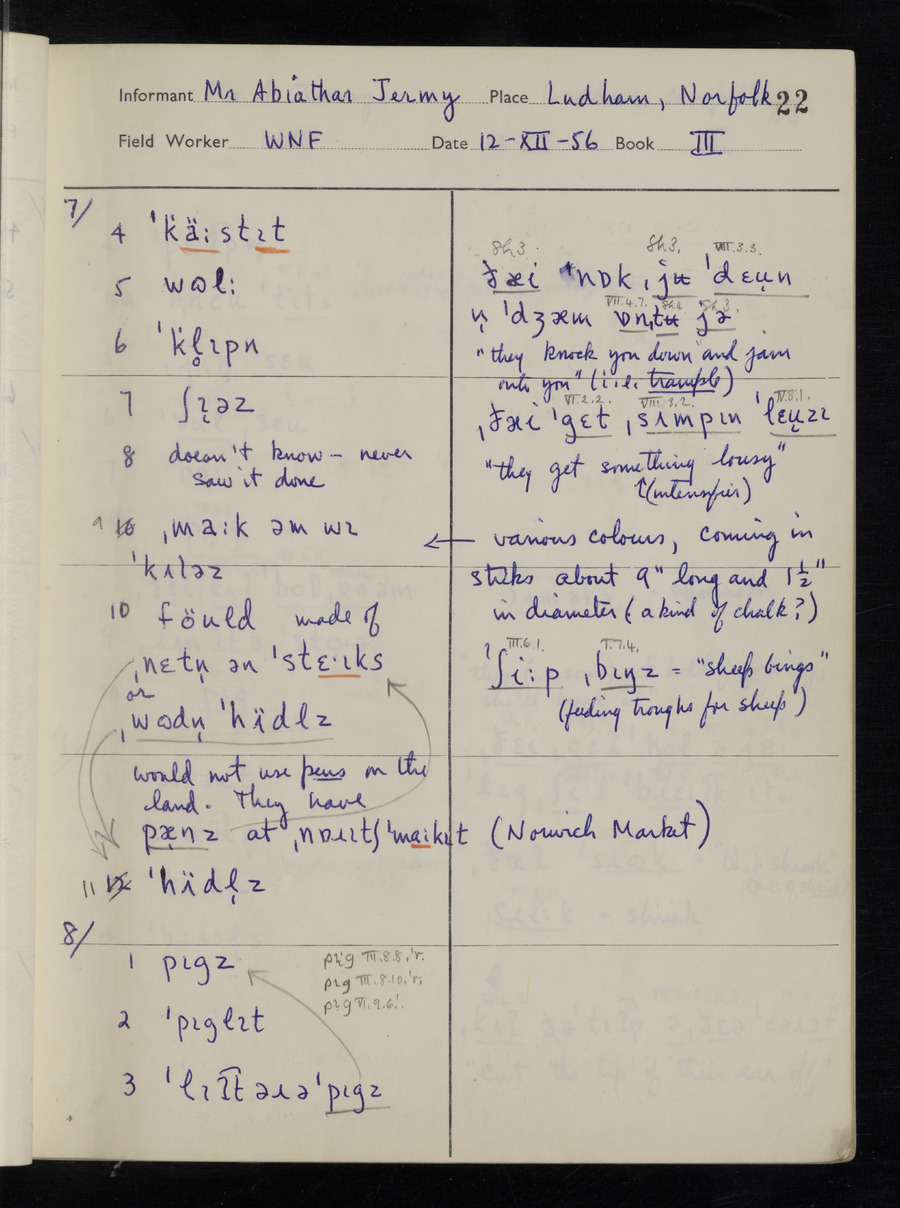 Informant Mr Abiathar Jermy Place Ludham, Norfolk 22
Field Worker WNF Date 12-XII-56 Book III
7/
4 ˈkä:stɪt
5 wɒl:
6 ˈkl̥ɪpn
7 ʃɪ̨əz
8 doesn't know – never
saw it done
9 ˌma:k əm wɪ
ˈkʌləz
10 föuld made of
ˌnɛtn̩ ən ˈstɛ·ɪks
or
ˌwɒdn̩ ˈhïdlz
would not use pens on the
land. They have
pæ̣nz at ˌnɒɪɪtʃ ˈma:kɪt (Norwich Market)
11 ˈhïdl̩z
8/
1 pɪgz
pɪg III.8.8.ˈr.
pɪg III.8.10.ˈr.
pɪg VI.9.6ˈ.
2 ˈpɪglɪt
3 ˈlɪt̅əɹəˈpɪgz
VIII.3.3.
ðæi ˈnɒk ˌjʉ ˈdɛṳn
VII.4.7.
n̩ ˈdʒæm ɒnˌtʉ jə
"they knock you down and jam
onto you" (i.e. trample)
VI.2.2. VIII.3.2. IV.8.1.
ˌðæi ˈgɛt ˌsʌmpɪn ˈlɛṳzɪ
"they get something lousy"
↑(intensifier)
← various colours, coming in
sticks about 9" long and 1½"
in diameter (a kind of chalk?)
III.6.1. I.7.4.
ˈʃi:p ˌbɪŋz = "sheep bings"
(feeding troughs for sheep)